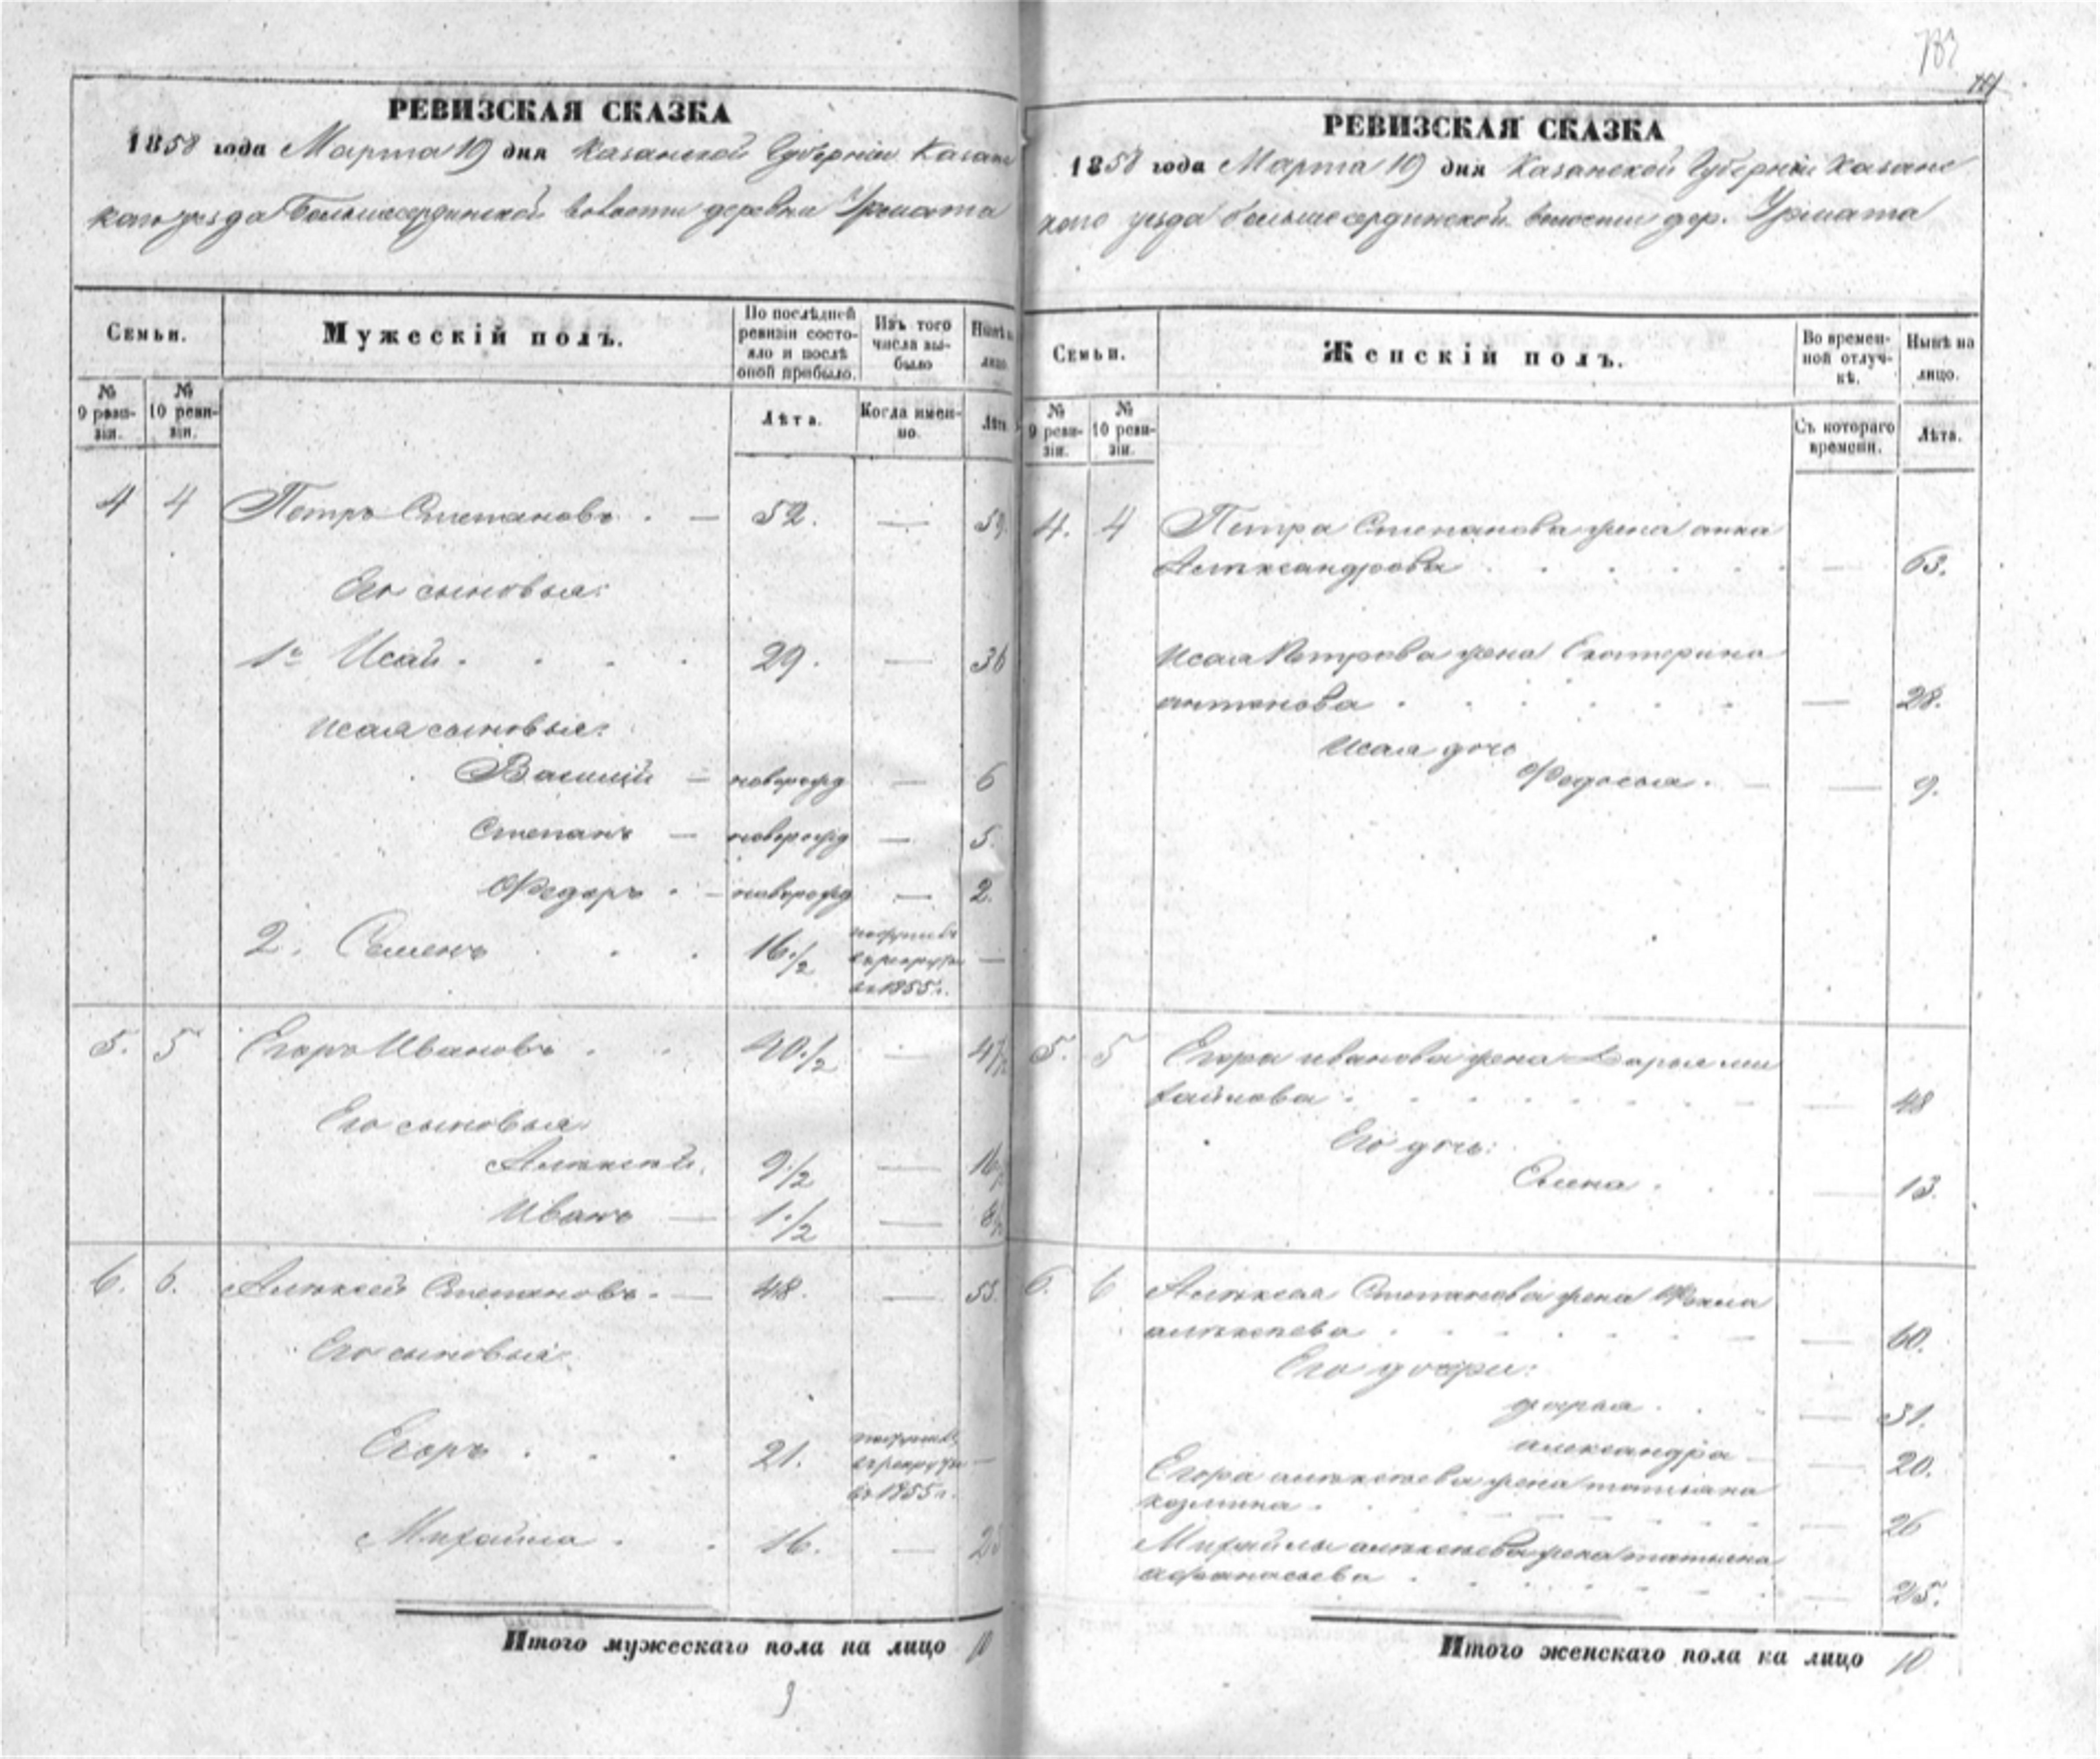 РЕВИЗСКАЯ СКАЗКА
1858 года Марта 19 дня Казанской Губернiи Казанс
каго уезда Большесердинской волости деревни Урмата
Семьи.
Мужескiй полъ.
По послѣдней
ревизiи состо-
яло и послѣ
оной прибыло.
Изъ того
числа вы-
было
Нынѣ на
лицо.
№
9 реви-
зiи.
№
10 реви-
зiи.
Лѣта.
Когда имен-
но.
Лѣта.
4 4 Петръ Степановъ . — 52. — 59.
Его сыновья:
1й Исай . . . . 29. — 36
Исая сыновья:
Василiй — новорожд — 6
Степанъ — новорожд — 5.
Ѳедоръ . — новорожд — 2.
2. Семенъ . . . 16 1/2 —
въ рекруты
въ 1855 г.
5. 5 Егоръ Ивановъ . . 40 1/2 — 47 1/2
Его сыновья:
Алексѣй. 9 1/2 — 16 1/2
Иванъ — 1 1/2 — 8 1/2
6. 6. Алексѣй Степановъ. — 48. — 55.
Его сыновья:
Егоръ . . . 21. —
въ рекруты
въ 1855 г.
Михайла . . 16. — 23
Итого мужескаго пола на лицо 10
РЕВИЗСКАЯ СКАЗКА
1858 года Марта 19 дня Казанской Губернiи Казанс
каго уезда Большесердинской волости дер. Урмата
Семьи.
Женскiй полъ.
Во времен-
ной отлуч-
кѣ.
Нынѣ на
лицо.
№
9 реви-
зiи.
№
10 реви-
зiи.
Съ котораго
времени.
Лѣта.
4. 4 Петра Степанова жена анна
Александрова . . . . . . — 63.
Исая Петрова жена Екатерина
антонова . . . . . . — 28.
Исая дочь
Ѳедосья. — — 9.
5. 5 Егора иванова жена Дарья ми
хайлова . . . . . . . — 48
Его дочь:
Елена . . . — 13.
6. 6 Алексея Степанова жена Ѳекла
алексеева . . . . . . . — 60.
Его дочери:
дарья . . . — 31.
александра — — 20.
Егора алексеева жена татьяна
козмина . . . . . . . — 26
Михайлы алексеева жена татьяна
афанасьева . . . . . . — 25.
Итого женскаго пола на лицо 10